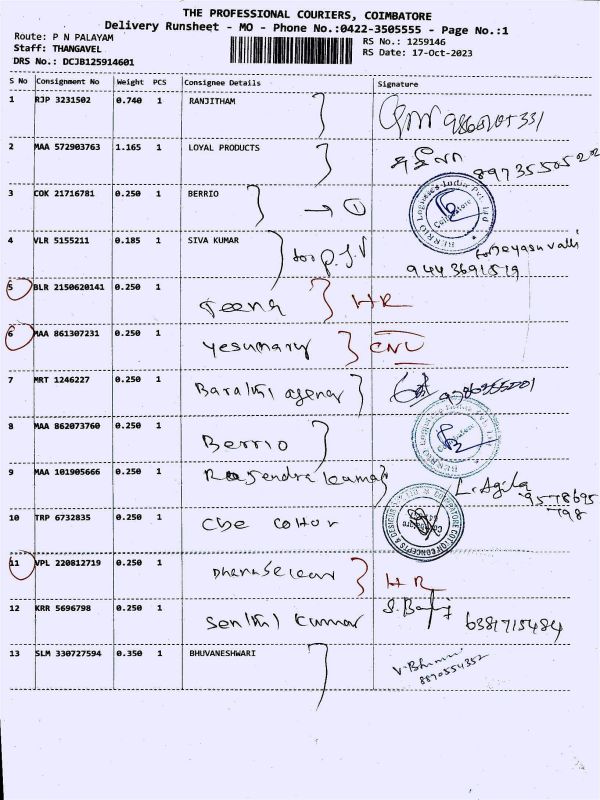 THE PROFESSIONAL COURIERS, COIMBATORE
Delivery Runsheet - MO - Phone No.:0422-3505555 - Page No.:1
Route: P N PALAYAM
RS No.: 1259146
Staff: THANGAVEL
RS Date: 17-Oct-2023
DRS No.: DCJB125914601
S No Consignment No Weight PCS Consignee Details Signature
1 RJP 3231502 0.740 1 RANJITHAM
2 MAA 572903763 1.165 1 LOYAL PRODUCTS
3 COK 21716781 0.250 1 BERRIO → 1
BERRIO Logistics India Pvt. Ltd Coimbatore
4 VLR 5155211 0.185 1 SIVA KUMAR for P.J.V
9443691519
5 BLR 2150620141 0.250 1 Teena HR
6 MAA 861307231 0.250 1 Yesumary CNL
7 MRT 1246227 0.250 1 Barathi agency
8 MAA 862073760 0.250 1 Berrio
BERRIO Logistics India Pvt. Ltd Coimbatore
9 MAA 101905666 0.250 1 Rajendra kumar L. Agila
9578695
798
10 TRP 6732835 0.250 1 Cbe cottor
11 VPL 220812719 0.250 1 Dhanasekar HR
12 KRR 5696798 0.250 1 Senthil kumar 6381715484
13 SLM 330727594 0.350 1 BHUVANESHWARI
8870554352